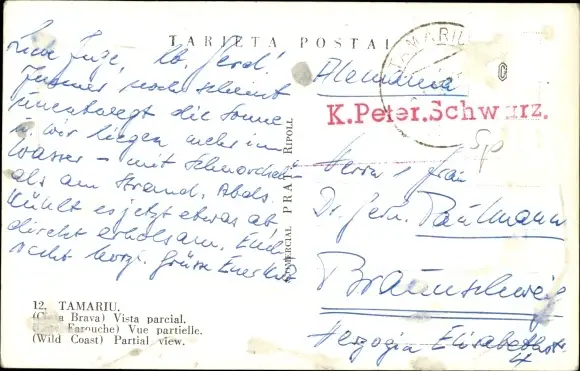 TARJETA POSTAL
Liebe Inge, lb. Gerd!
Immer noch scheint
unentwegt die Sonne
u. wir liegen mehr im
Wasser – mit Schnorchel –
als am Strand. Abds.
kühlt es jetzt etwas ab,
direkt erholsam. Euch
recht herzl. Grüsse Euer
12. TAMARIU.
(Costa Brava) Vista parcial.
Farouche) Vue partielle.
(Wild Coast) Partial view.
COMERCIAL PRAT - RIPOLL
TAMARIU
Alemania
K.Peter.Schwarz.
Herrn u. Frau
Dr. Gerh. Paulmann
Braunschweig
Herzogin Elisabethstr.